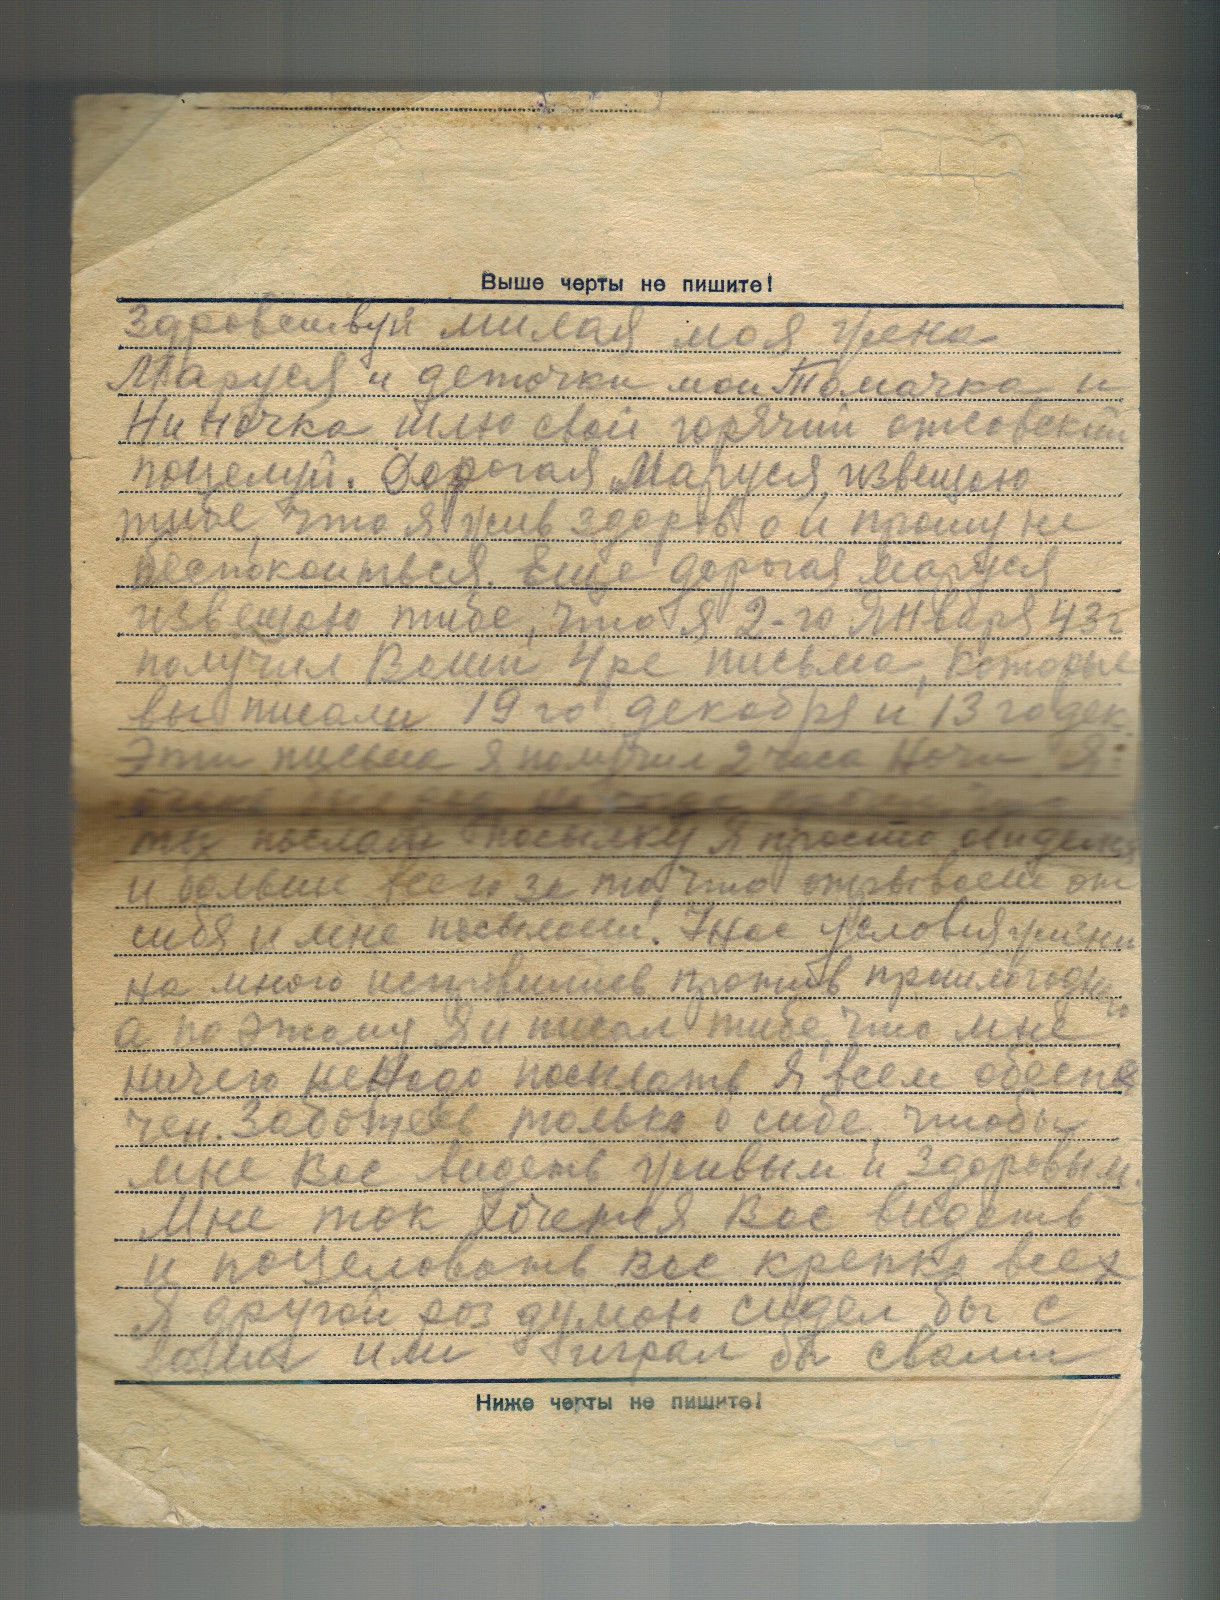 Выше черты не пишите!
Здровствуй милая моя жена
Маруся и деточки мои Томачка и
Ниночка шлю свой горячий отсовский
поцелуй. Дорогая Маруся, извещаю
тибе, что я жив здоров о и прошу не
беспокоиться. Еще дорогая Маруся
извещаю тибе, что я 2-го Января 43 г
получил Ваши 4ре письма, которые
вы писали 19 го декабря и 13 го дек.
Эти письма я получил 2 часа Ночи Я
ты послала посылку Я просто обиделся
и больше всего за то, что отрываеш от
сибя и мне посылаеш. У нас условия жизни
на много исправились против прошлогоднего
а поэтому Я и писал тибе, что мне
ничего ненадо посылать Я всем обеспе
чен. Заботьтесь только о сибе, чтобы
мне Вас видеть живым и здоровым.
Мне так хочется Вас видеть
и поцеловать вас крепко всех
Я другой раз думаю сидел бы с
вами или играл бы сваими
Ниже черты не пишите!